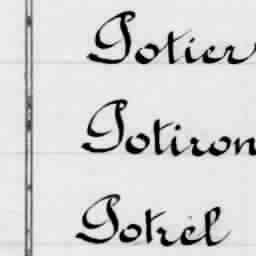 Potier
Potiron
Potrel